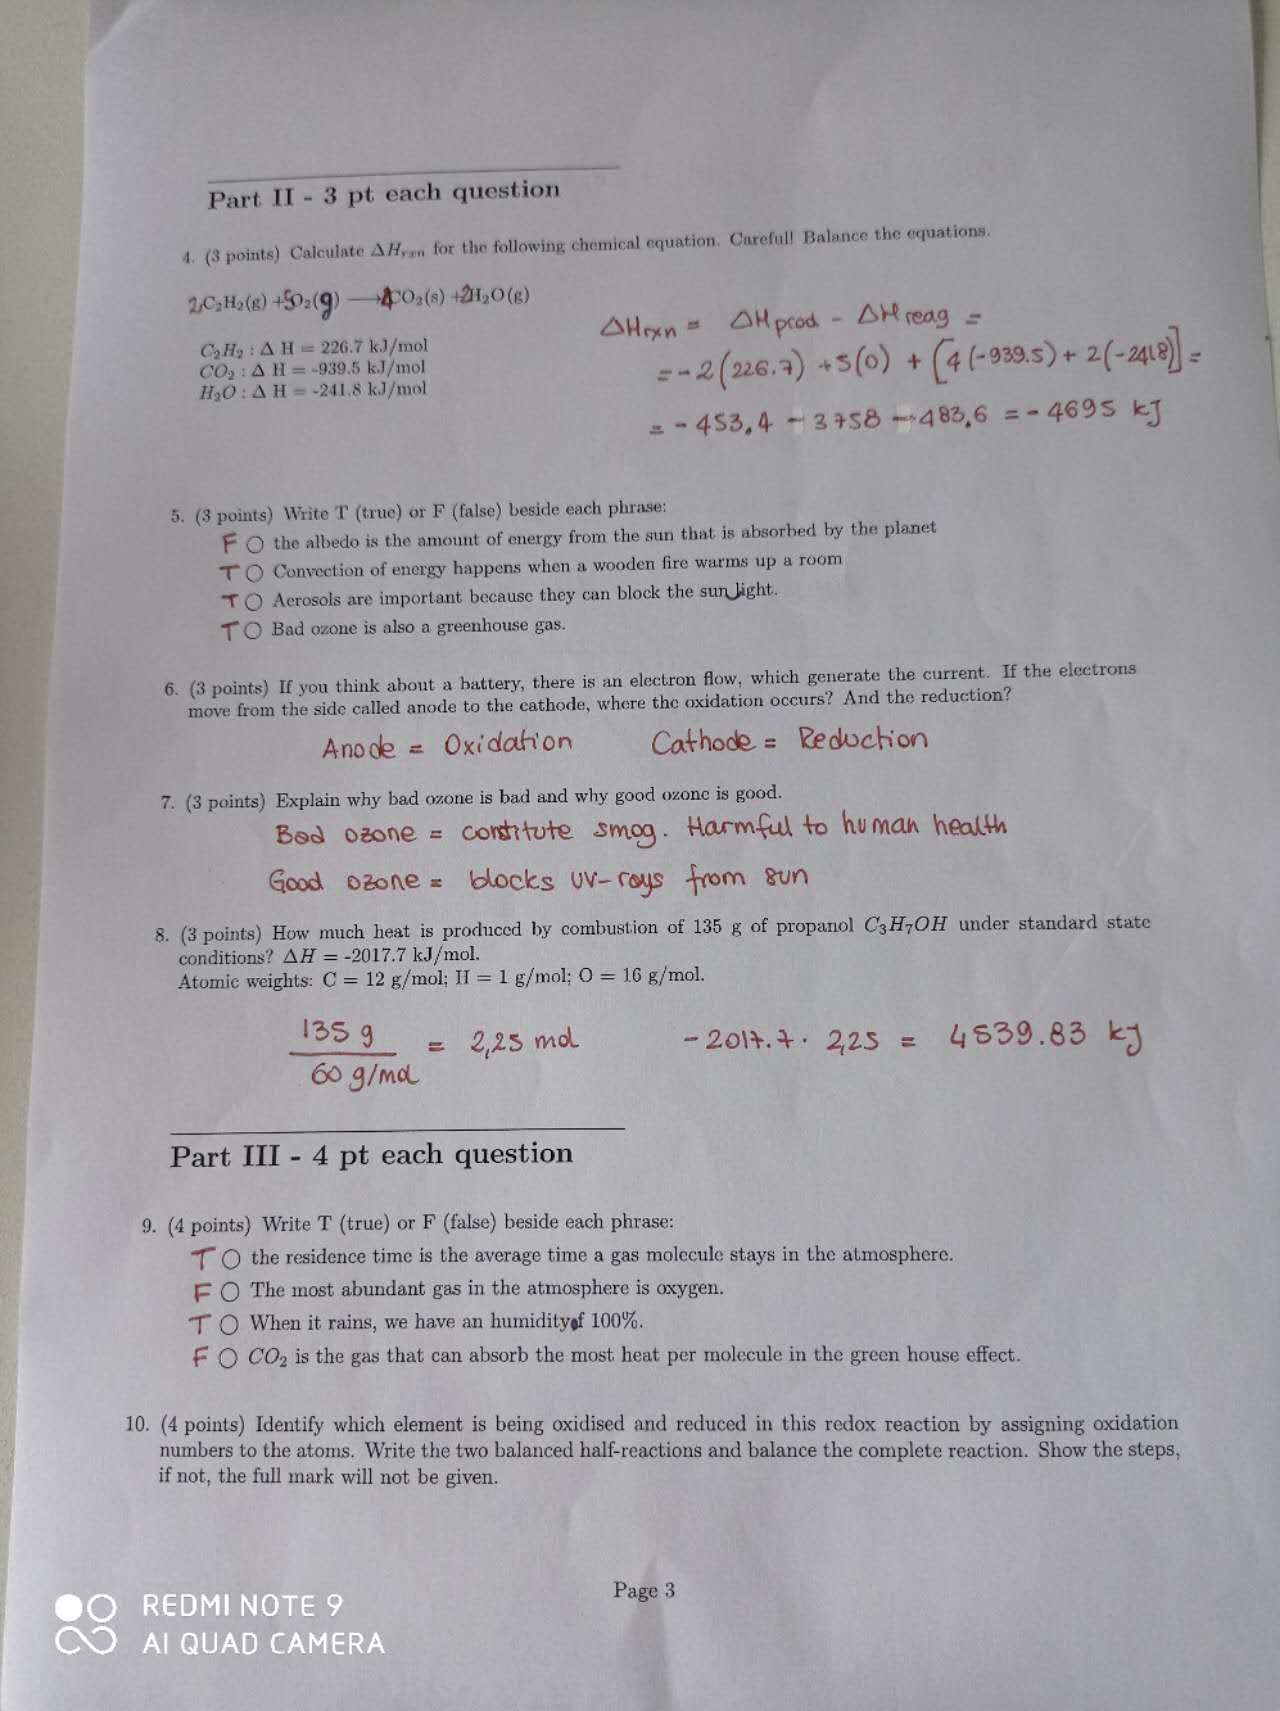 Part II - 3 pt each question
4. (3 points) Calculate ΔHrxn for the following chemical equation. Careful! Balance the equations.
2C₂H₂(g) +5O₂(g) ⟶4CO₂(s) +2H₂O(g)
C₂H₂ : Δ H = 226.7 kJ/mol
CO₂ : Δ H = -939.5 kJ/mol
H₂O : Δ H = -241.8 kJ/mol
ΔHrxn = ΔHprod - ΔHreag =
= -2(226.7) +5(0) + [4(-939.5) + 2(-241.8)] =
= - 453,4 - 3758 - 483,6 = - 4695 kJ
5. (3 points) Write T (true) or F (false) beside each phrase:
F ○ the albedo is the amount of energy from the sun that is absorbed by the planet
T ○ Convection of energy happens when a wooden fire warms up a room
T ○ Aerosols are important because they can block the sun light.
T ○ Bad ozone is also a greenhouse gas.
6. (3 points) If you think about a battery, there is an electron flow, which generate the current. If the electrons
move from the side called anode to the cathode, where the oxidation occurs? And the reduction?
Anode = Oxidation Cathode = Reduction
7. (3 points) Explain why bad ozone is bad and why good ozone is good.
Bad ozone = constitute smog. Harmful to human health
Good ozone = blocks UV-rays from sun
8. (3 points) How much heat is produced by combustion of 135 g of propanol C₃H₇OH under standard state
conditions? ΔH = -2017.7 kJ/mol.
Atomic weights: C = 12 g/mol; H = 1 g/mol; O = 16 g/mol.
135 g
= 2,25 mol - 2017.7 · 2,25 = 4539.83 kJ
60 g/mol
Part III - 4 pt each question
9. (4 points) Write T (true) or F (false) beside each phrase:
T ○ the residence time is the average time a gas molecule stays in the atmosphere.
F ○ The most abundant gas in the atmosphere is oxygen.
T ○ When it rains, we have an humidity of 100%.
F ○ CO₂ is the gas that can absorb the most heat per molecule in the green house effect.
10. (4 points) Identify which element is being oxidised and reduced in this redox reaction by assigning oxidation
numbers to the atoms. Write the two balanced half-reactions and balance the complete reaction. Show the steps,
if not, the full mark will not be given.
Page 3
REDMI NOTE 9
AI QUAD CAMERA